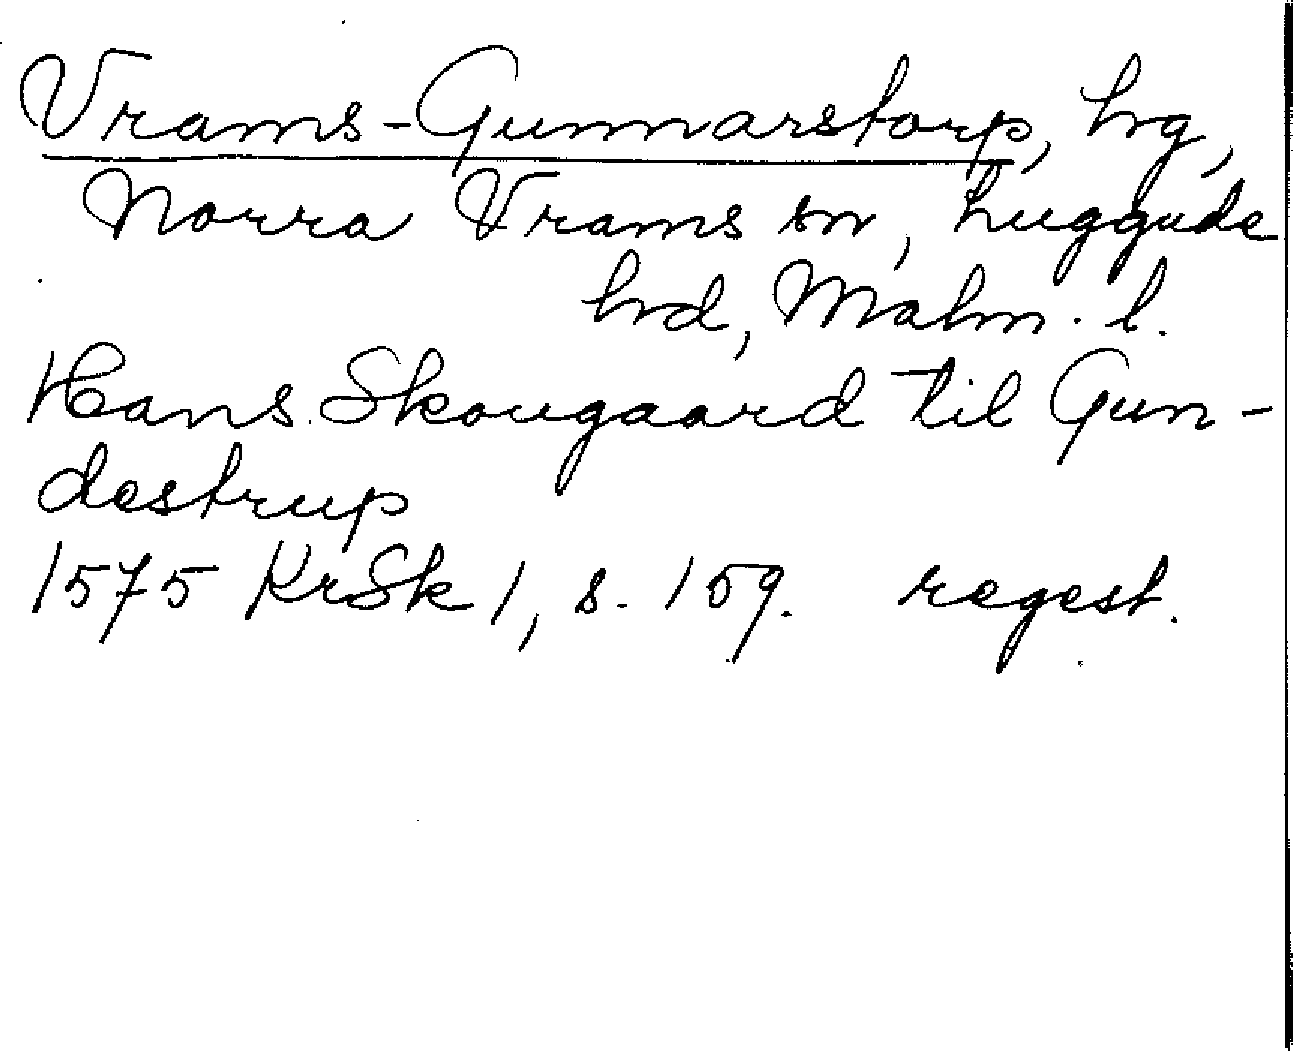 Vrams-Gunnarstorp, hg,
Norra Vrams sn, Luggude
hd, Malm. l.
Hans Skougaard til Gun-
destrup
1575 KrSk 1, s. 159. regest.